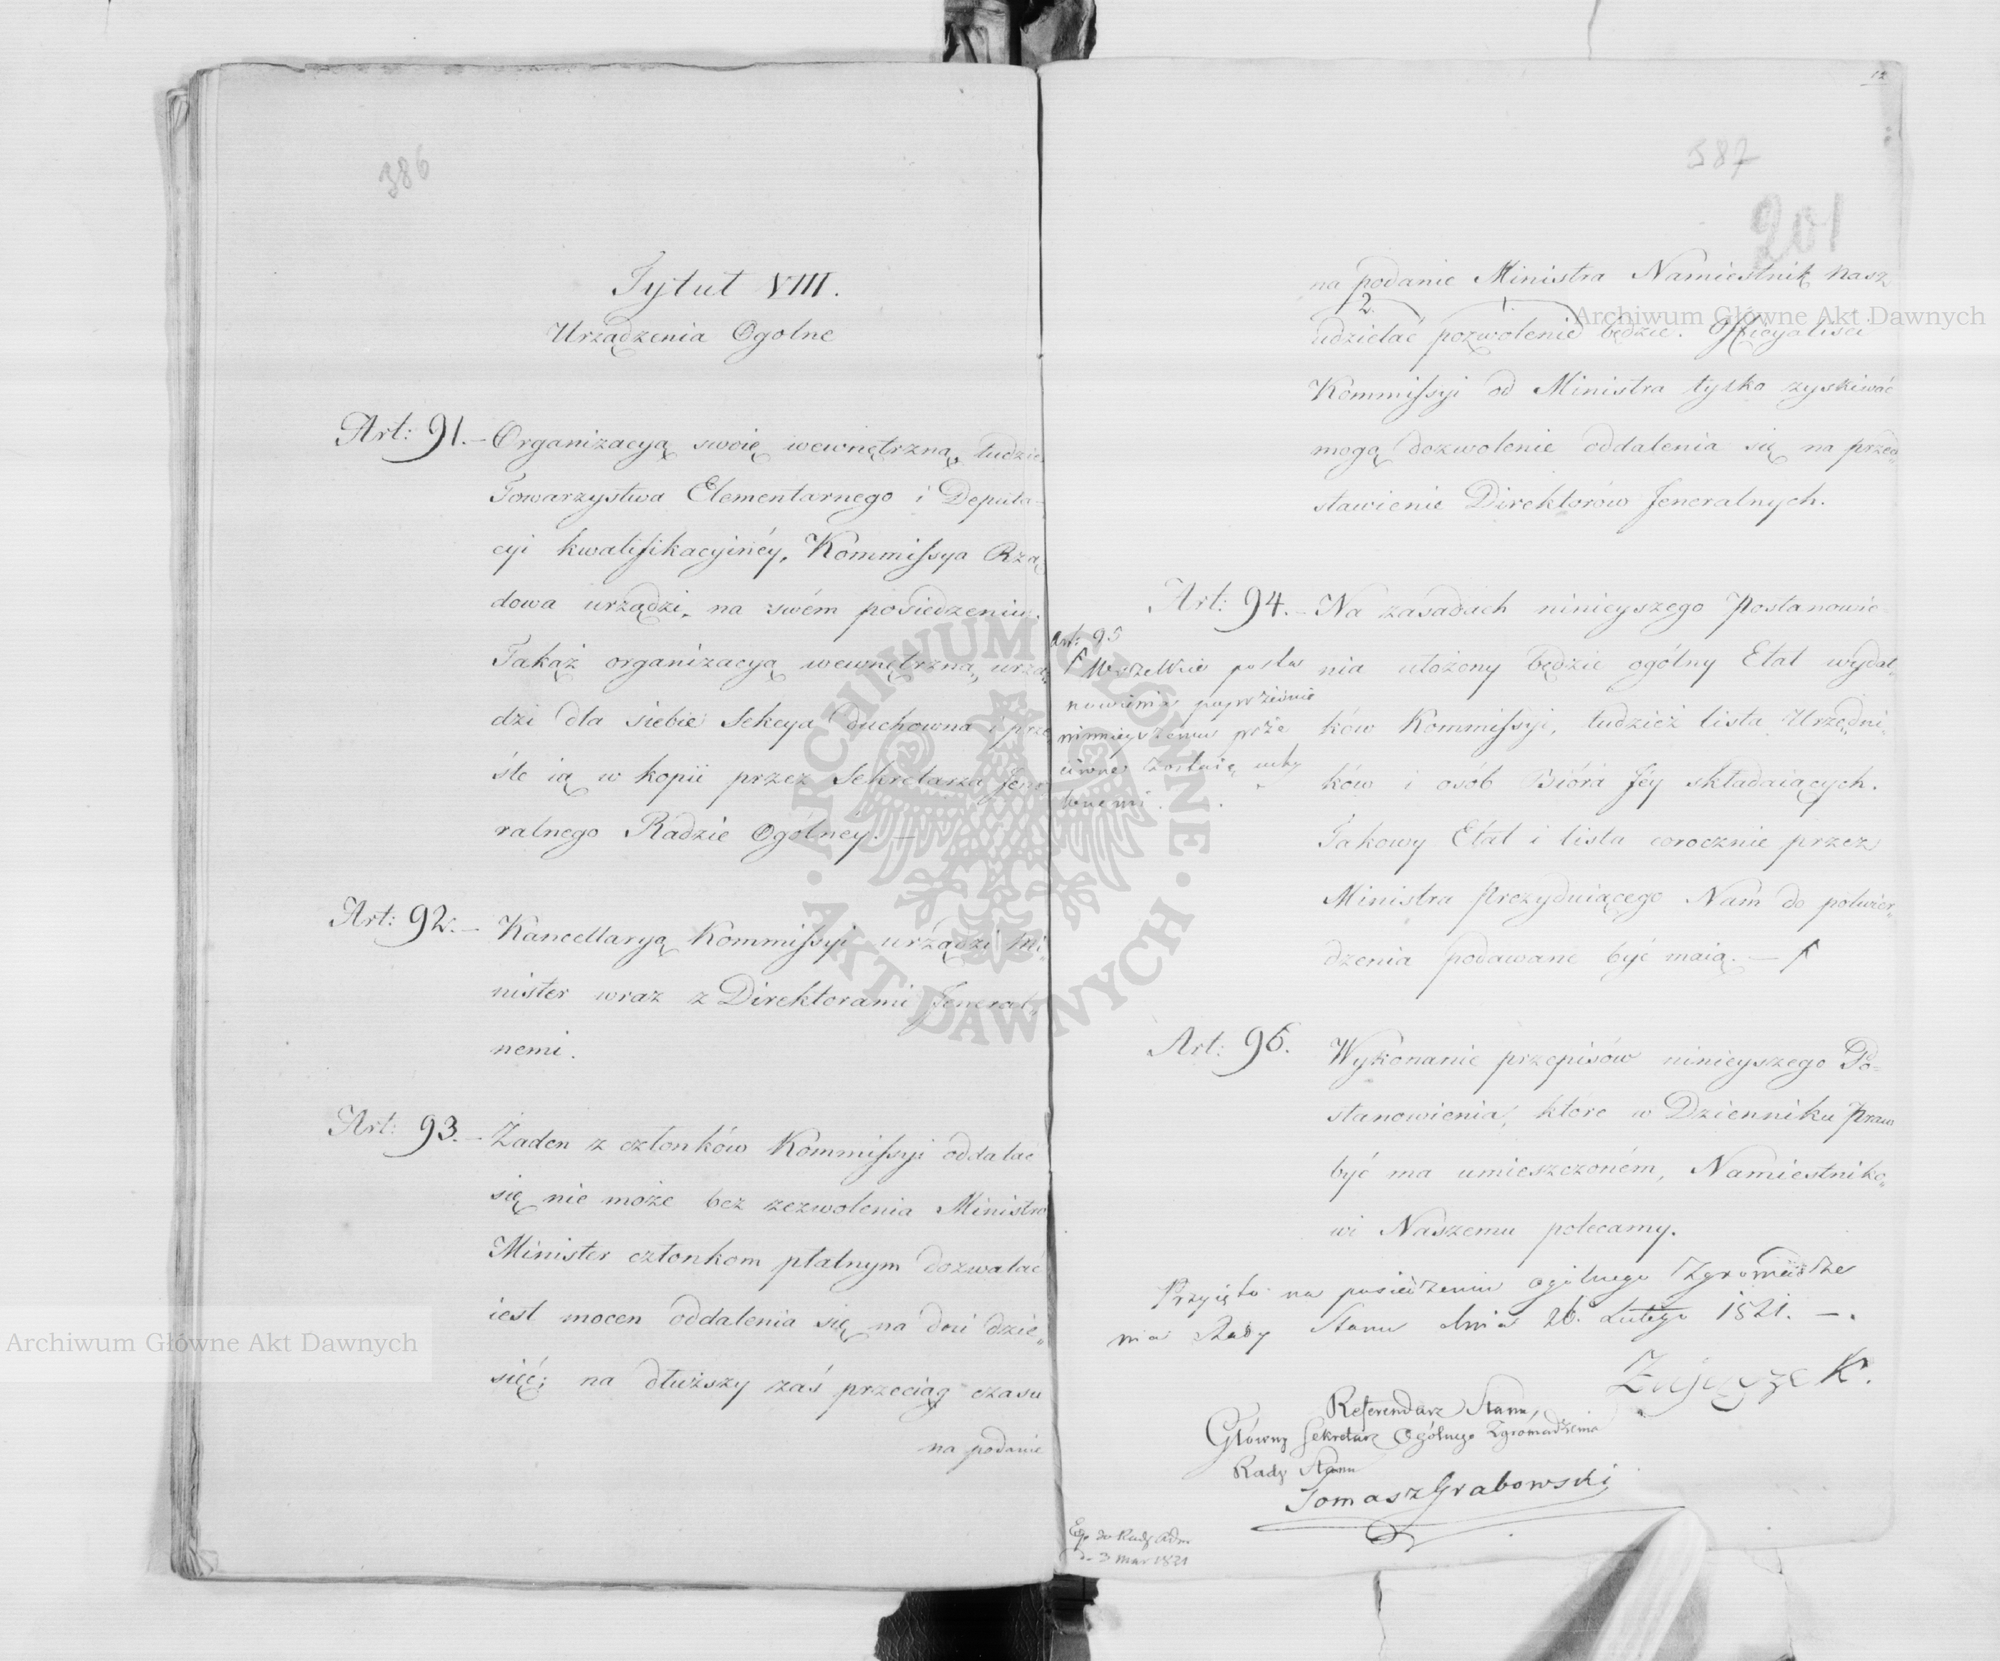 386
Tytuł VIII.
Urządzenia Ogolne
Art: 91. – Organizacyą swoię wewnętrzną, tudzie
Towarzystwa Elementarnego i Deputa-
cyi kwalifikacyinéy, Kommissya Rzą
dowa urządzi, na swém posiedzeniu.
Takąż organizacyą wewnętrzną, urzą
dzi dla siebie Sekcya duchowna i prze
śle ią w kopii przez Sekretarza Jene
ralnego Radzie Ogólnéy. –
Art: 92. – Kancellaryą Kommissyi urządzi Mi-
nister wraz z Direktorami Jeneral-
nemi.
Art: 93. – Żaden z członków Kommissyi oddalac
się nie może bez zezwolenia Ministra
Minister członkom płatnym dozwalać
iest mocen oddalenia się na dni dzie-
sięć; na dłuższy zaś przeciąg czasu
na podanie
12
387
201
na podanie Ministra Namiestnik nasz
2. 1.
udzielać pozwolenie będzie. Officyaliści
Kommissyi od Ministra tylko zyskiwać
mogą dozwolenie oddalenia się na przed-
stawienie Direktorów Jeneralnych.
Art: 94. – Na zasadach ninieyszego Postanowie
nia ułożony będzie ogólny Etat wydat-
ków Kommissyi, tudzież lista Urzędni-
ków i osób Bióra Jéy składaiących.
Takowy Etat i lista corocznie przez
Ministra Prezyduiącego Nam do potwier-
dzenia podawane być maią. –
Art: 95
Wszelkie posta
nowienia poprzednie
ninieyszemu prze
ciwne zostaią uchy
lonemi.
Art: 96. Wykonanie przepisów ninieyszego Po-
stanowienia, które w Dzienniku Praw
być ma umieszczoném, Namiestniko-
wi Naszemu polecamy.
Przyięto na posiedzeniu ogólnego Zgromadze
nia Rady Stanu dnia 26. Lutego 1821. –.
Zajączek.
Referendarz Stanu,
Główny Sekretarz Ogólnego Zgromadzenia
Rady Stanu
Tomasz Grabowski
Exp. do Rady Adm
d. 3 Mar 1821
Archiwum Główne Akt Dawnych
Archiwum Główne Akt Dawnych
ARCHIWUM GŁÓWNE · AKT DAWNYCH ·